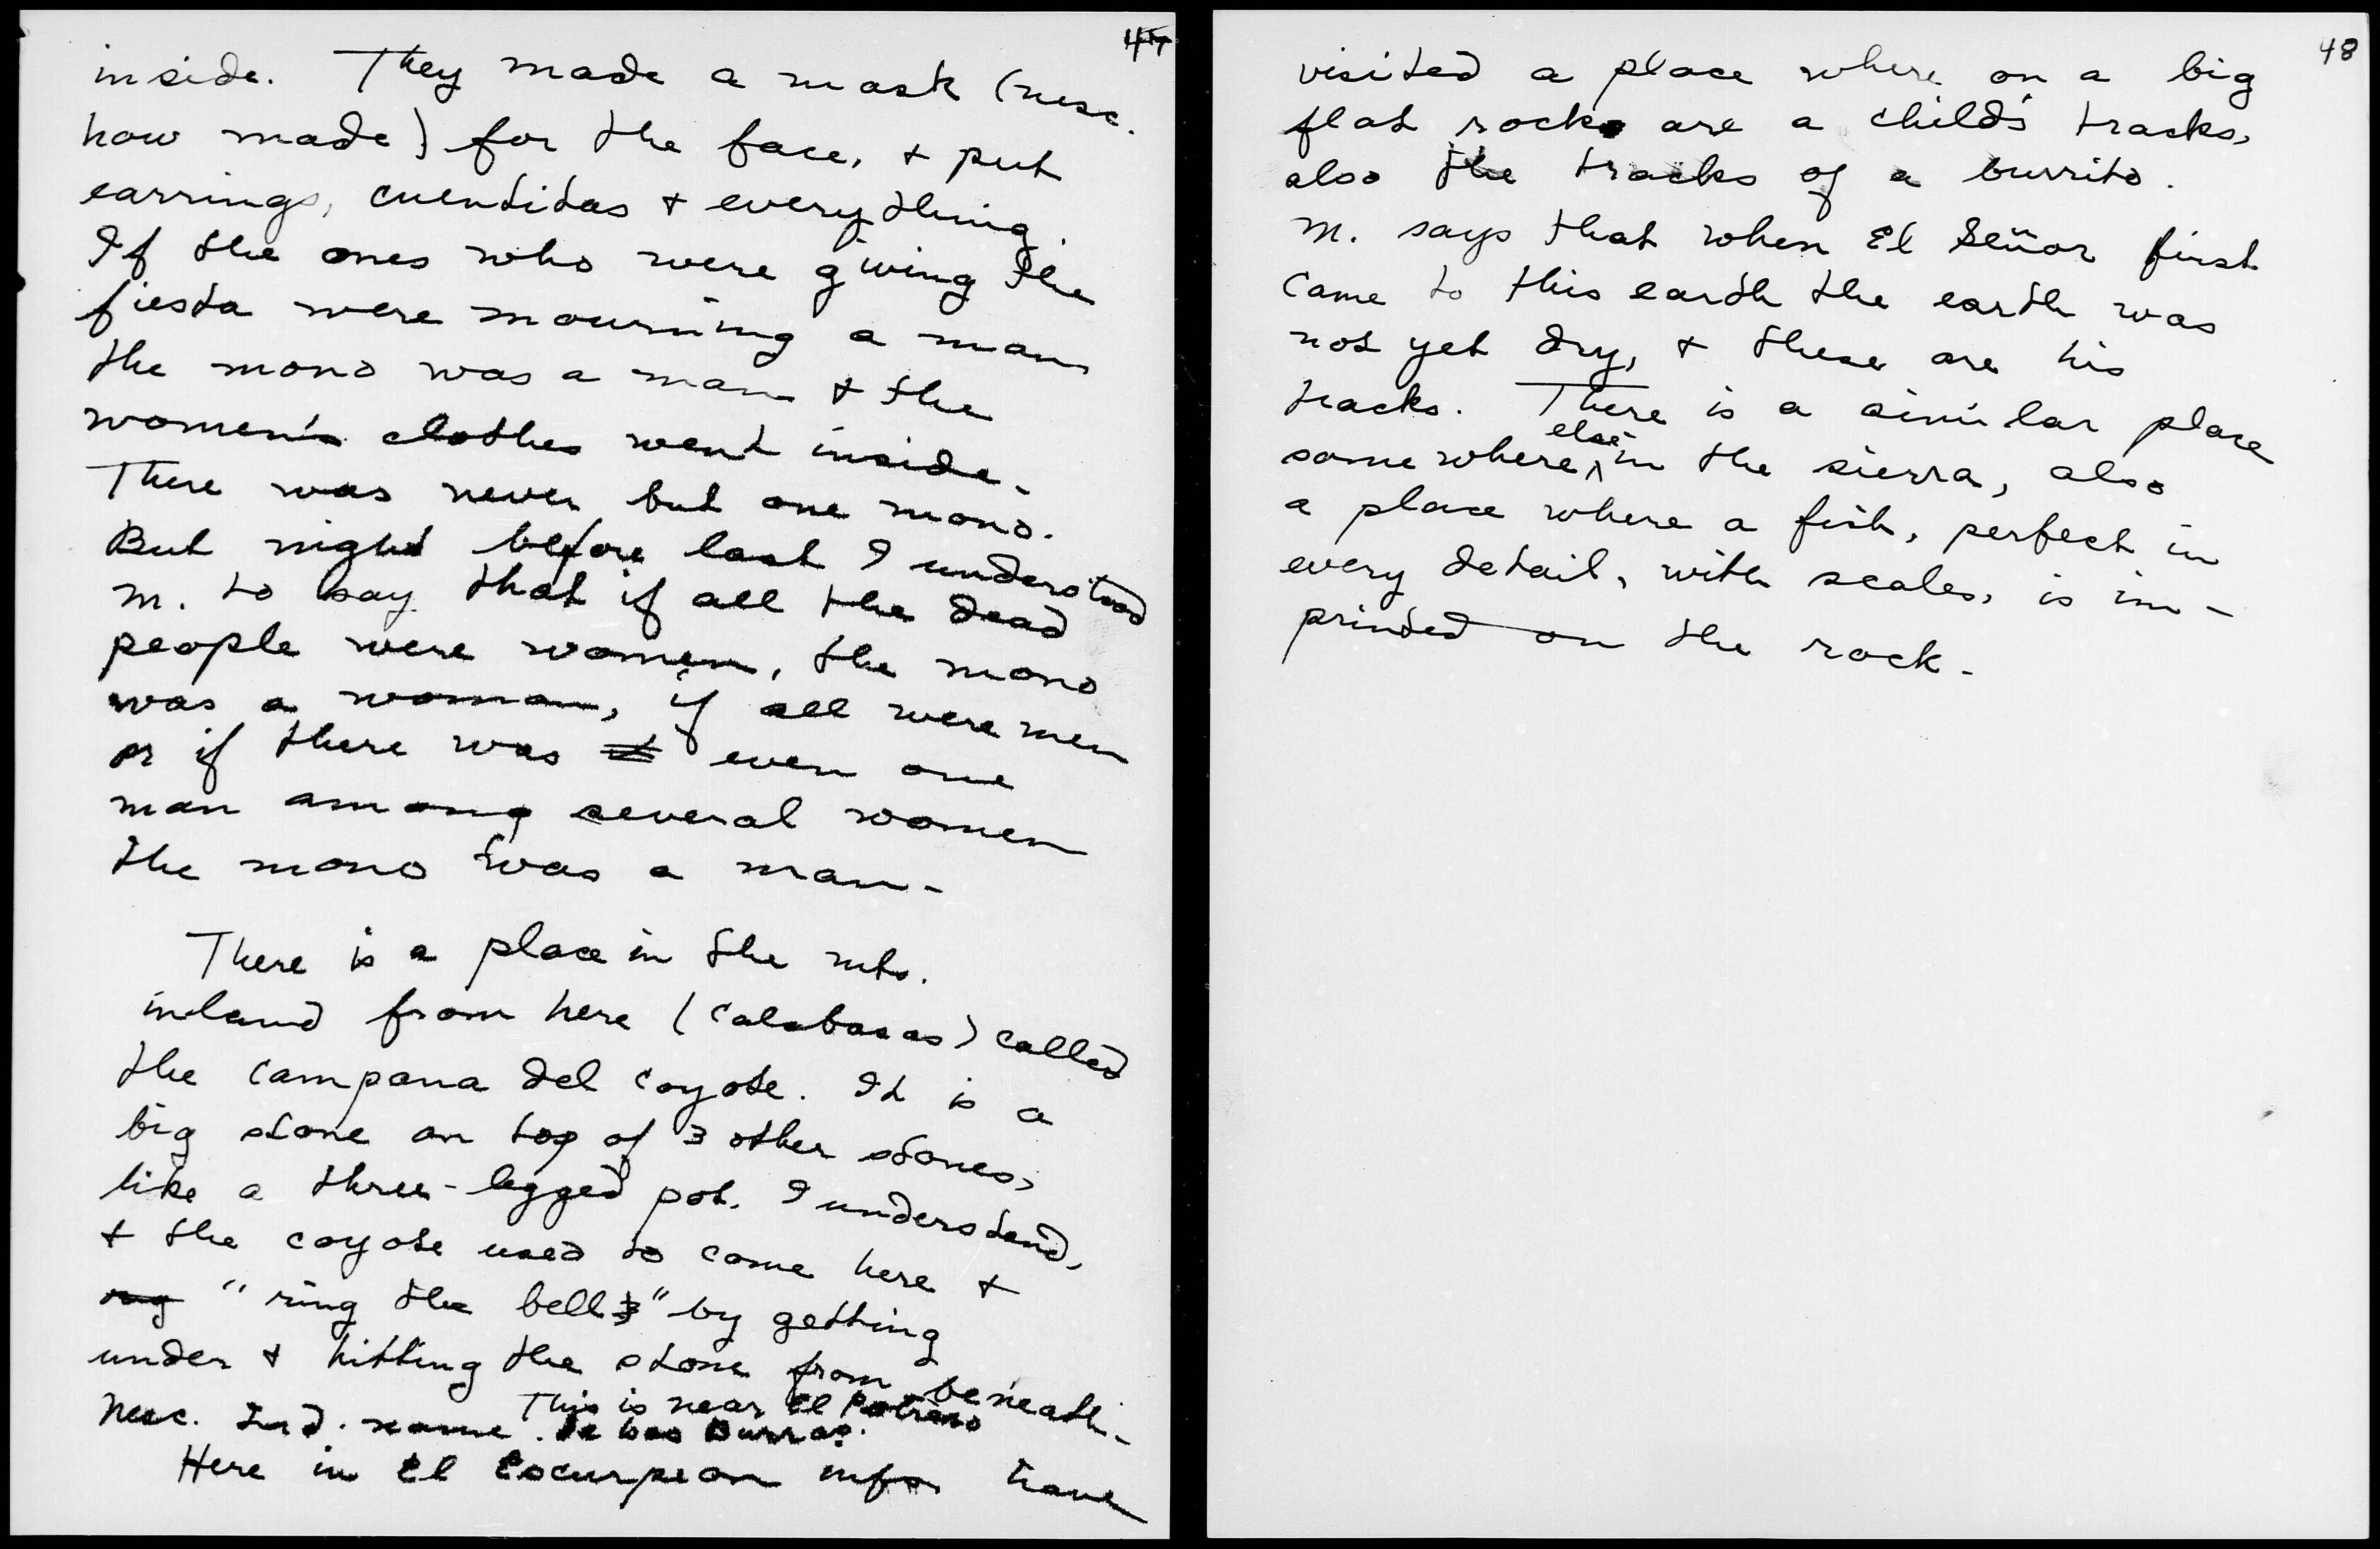 47
inside. They made a mask (nesc.
how made) for the face, + put
earrings, cuentitas + everything.
If the ones who were giving the
fiesta were mourning a man
the mono was a man + the
women's clothes went inside.
There was never but one mono.
But night before last I understood
M. to say that if all the dead
people were women, the mono
was a woman, if all were men
or if there was even one
man among several women
the mono was a man.
There is a place in the mts.
inland from here (Calabasas) called
the Campana del Coyote. It is a
big stone on top of 3 other stones,
like a three-legged pot. I understand,
+ the coyote used to come here +
"ring the bell" by getting
under + hitting the stone from beneath.
Nesc. Ind. name. This is near El Potrero
de las Burras.
Here in El Escurpion infs. have
48
visited a place where on a big
flat rock are a child's tracks,
also the tracks of a burrito.
M. says that when El Señor first
came to this earth the earth was
not yet dry, + these are his
tracks. There is a similar place
somewhere else in the sierra, also
a place where a fish, perfect in
every detail, with scales, is im-
printed on the rock.